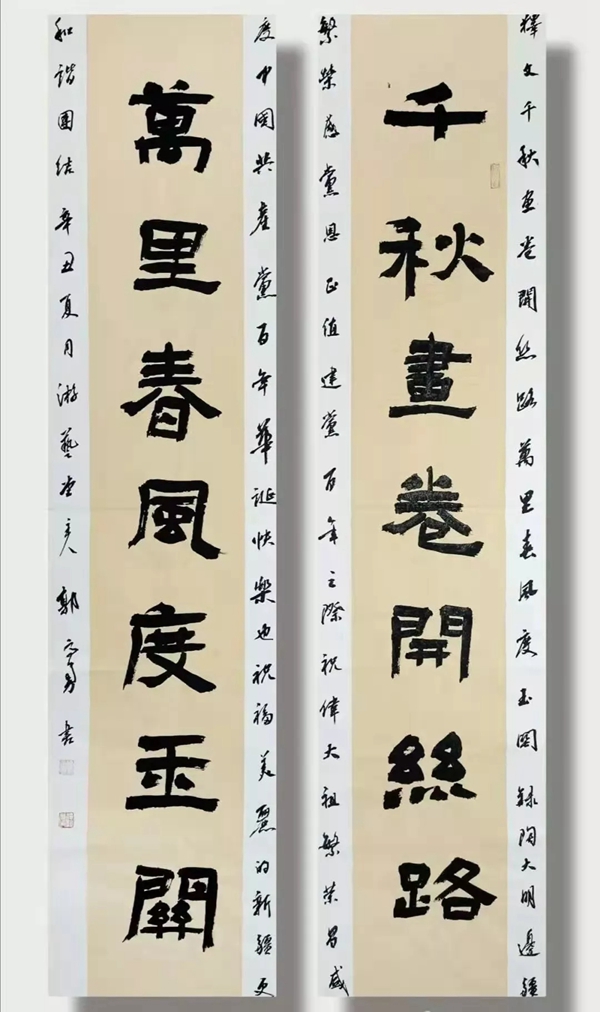 釋文千秋画卷開絲路萬里春風度玉關錄陶大明邊疆
千秋畫卷開絲路
繁榮感黨恩正值建黨百年之際祝偉大祖繁榮昌盛
度中國共產黨百年華誕快樂也祝福美麗的新疆更
萬里春風度玉關
和諧團結辛丑夏月游藝堂主人郭勇書